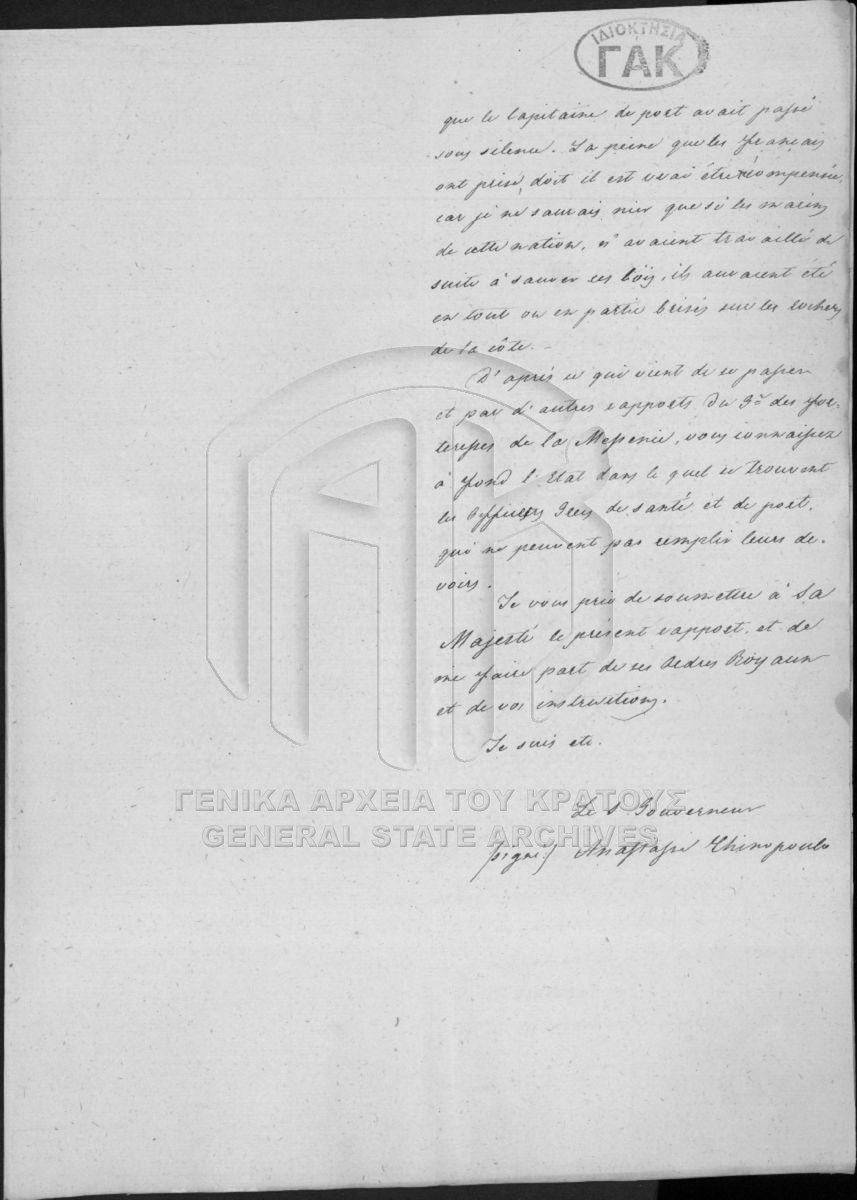 ΙΔΙΟΚΤΗΣΙΑ
ΓΑΚ
que le Capitaine de port avait passé
sous silence. La peine que les français
ont prise, doit il est vrai être récompensée,
car je ne saurais nier que si les marins
de cette nation, n'avaient travaillé de
suite à sauver ces bois, ils auraient été
en tout ou en partie brisés sur les rochers
de la côte. –
D'après ce qui vient de se passer
et par d'autres rapports du Gr des for-
teresses de la Messenie, vous connaissez
à fond l'Etat dans le quel se trouvent
les Officiers Grecs de santé et de port,
qui ne peuvent pas remplir leurs de-
voirs.
Je vous prie de soumettre à Sa
Majesté le présent rapport, et de
me faire part de ses Ordres Royaux
et de vos instructions.
Je suis etc.
ΓΕΝΙΚΑ ΑΡΧΕΙΑ ΤΟΥ ΚΡΑΤΟΥΣ
Le s Gouverneur
GENERAL STATE ARCHIVES
(signé) Anastase